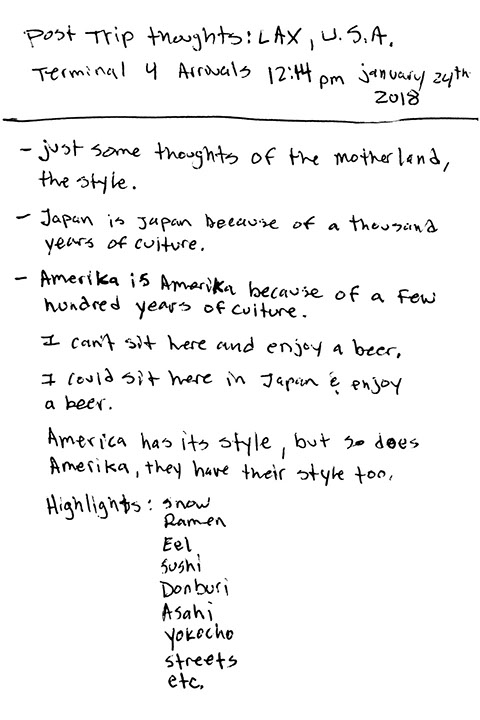 Post Trip thoughts: LAX, U.S.A.
Terminal 4 Arrivals 12:44 pm january 24th
2018
- just some thoughts of the motherland,
the style.
- Japan is japan because of a thousand
years of culture.
- Amerika is Amerika because of a few
hundred years of culture.
I can't sit here and enjoy a beer.
I could sit here in Japan & enjoy
a beer.
America has its style, but so does
Amerika, they have their style too.
Highlights: snow
Ramen
Eel
Sushi
Donburi
Asahi
Yokocho
streets
etc.